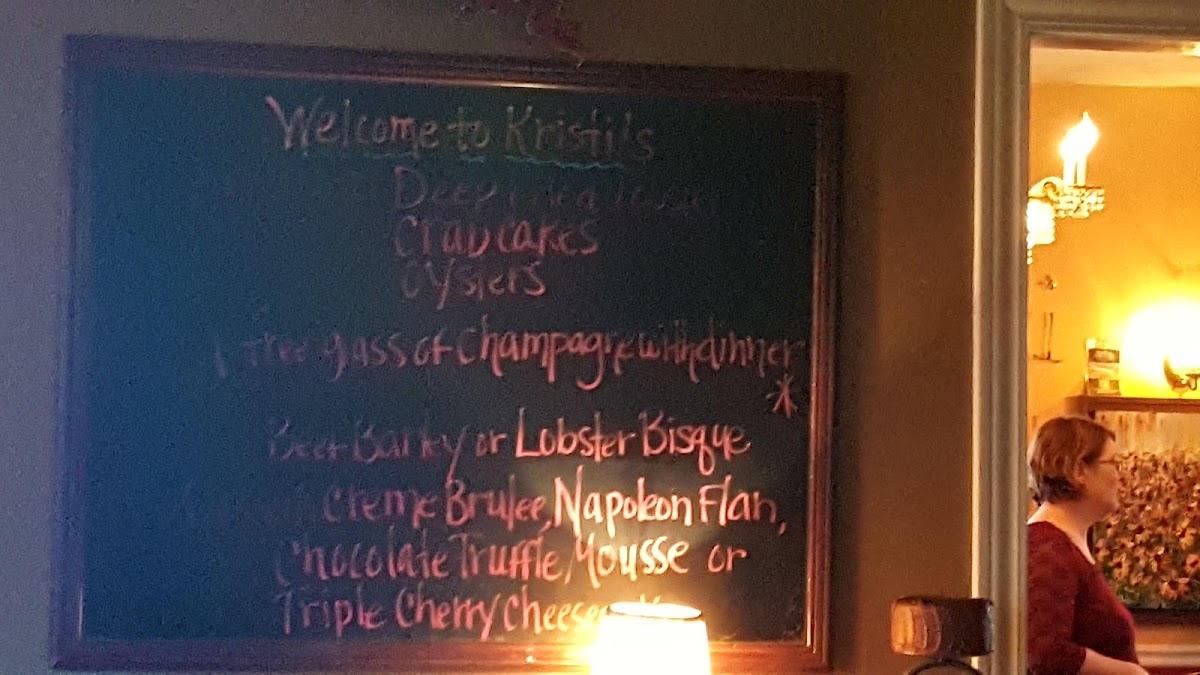 Welcome to Kristi's
Deep
Crab cakes
Oysters
1 free glass of Champagne with dinner
*
Beef Barley or Lobster Bisque
Creme Brulee, Napoleon Flan,
Chocolate Truffle, Mousse or
Triple Cherry